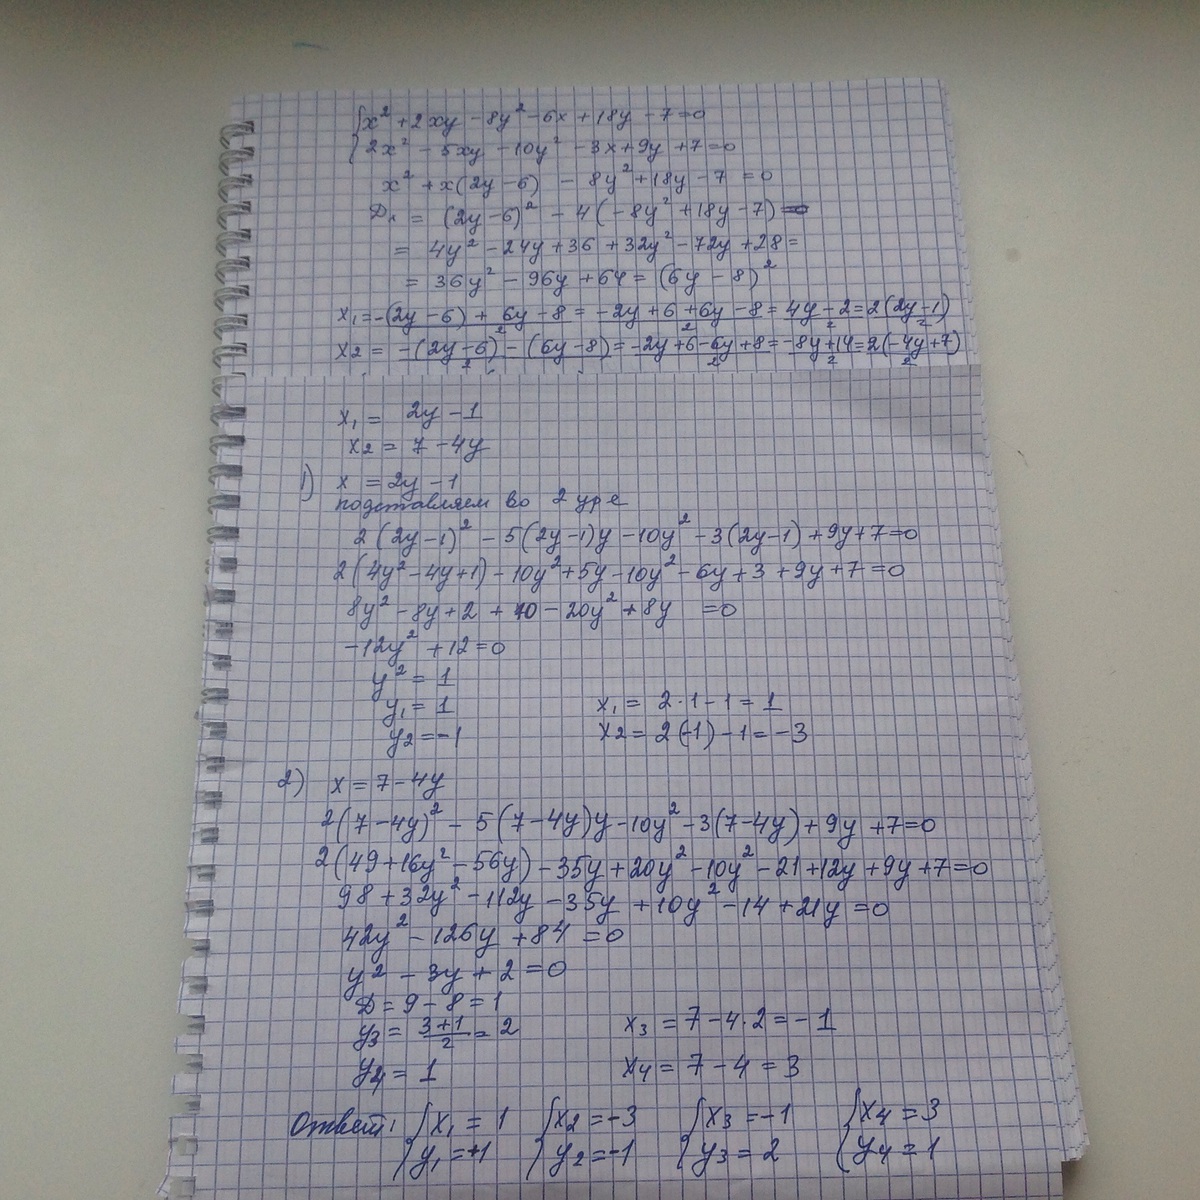 {x² + 2xy - 8y² - 6x + 18y - 7 = 0
{2x² - 5xy - 10y² - 3x + 9y + 7 = 0
x² + x(2y - 6) - 8y² + 18y - 7 = 0
Dₓ = (2y - 6)² - 4(-8y² + 18y - 7) =
= 4y² - 24y + 36 + 32y² - 72y + 28 =
= 36y² - 96y + 64 = (6y - 8)²
x₁ = (-(2y - 6) + 6y - 8)/2 = (-2y + 6 + 6y - 8)/2 = (4y - 2)/2 = 2(2y - 1)/2
x₂ = (-(2y - 6) - (6y - 8))/2 = (-2y + 6 - 6y + 8)/2 = (-8y + 14)/2 = 2(-4y + 7)/2
x₁ = 2y - 1
x₂ = 7 - 4y
1) x = 2y - 1
подставляем во 2 ур е
2(2y - 1)² - 5(2y - 1)y - 10y² - 3(2y - 1) + 9y + 7 = 0
2(4y² - 4y + 1) - 10y² + 5y - 10y² - 6y + 3 + 9y + 7 = 0
8y² - 8y + 2 + 10 - 20y² + 8y = 0
-12y² + 12 = 0
y² = 1
y₁ = 1 x₁ = 2·1 - 1 = 1
y₂ = -1 x₂ = 2(-1) - 1 = -3
2) x = 7 - 4y
2(7 - 4y)² - 5(7 - 4y)y - 10y² - 3(7 - 4y) + 9y + 7 = 0
2(49 + 16y² - 56y) - 35y + 20y² - 10y² - 21 + 12y + 9y + 7 = 0
98 + 32y² - 112y - 35y + 10y² - 14 + 21y = 0
42y² - 126y + 84 = 0
y² - 3y + 2 = 0
D = 9 - 8 = 1
y₃ = (3 + 1)/2 = 2 x₃ = 7 - 4·2 = -1
y₄ = 1 x₄ = 7 - 4 = 3
Ответ: {x₁ = 1 {x₂ = -3 {x₃ = -1 {x₄ = 3
{y₁ = +1 {y₂ = -1 {y₃ = 2 {y₄ = 1